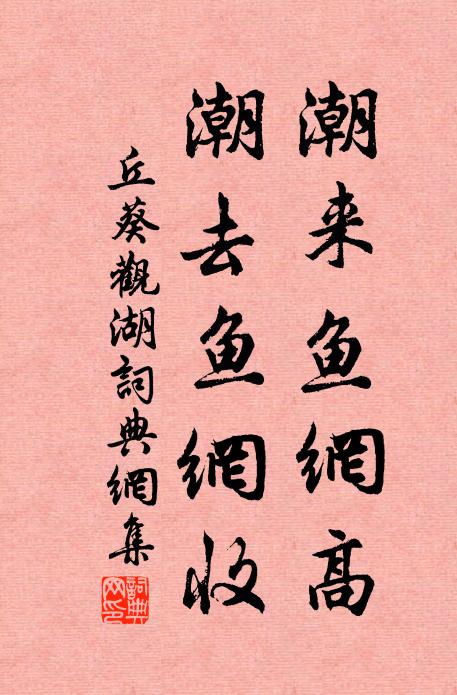 潮来鱼網高
潮去鱼網收
丘葵觀湖詞典網集
詞典网印